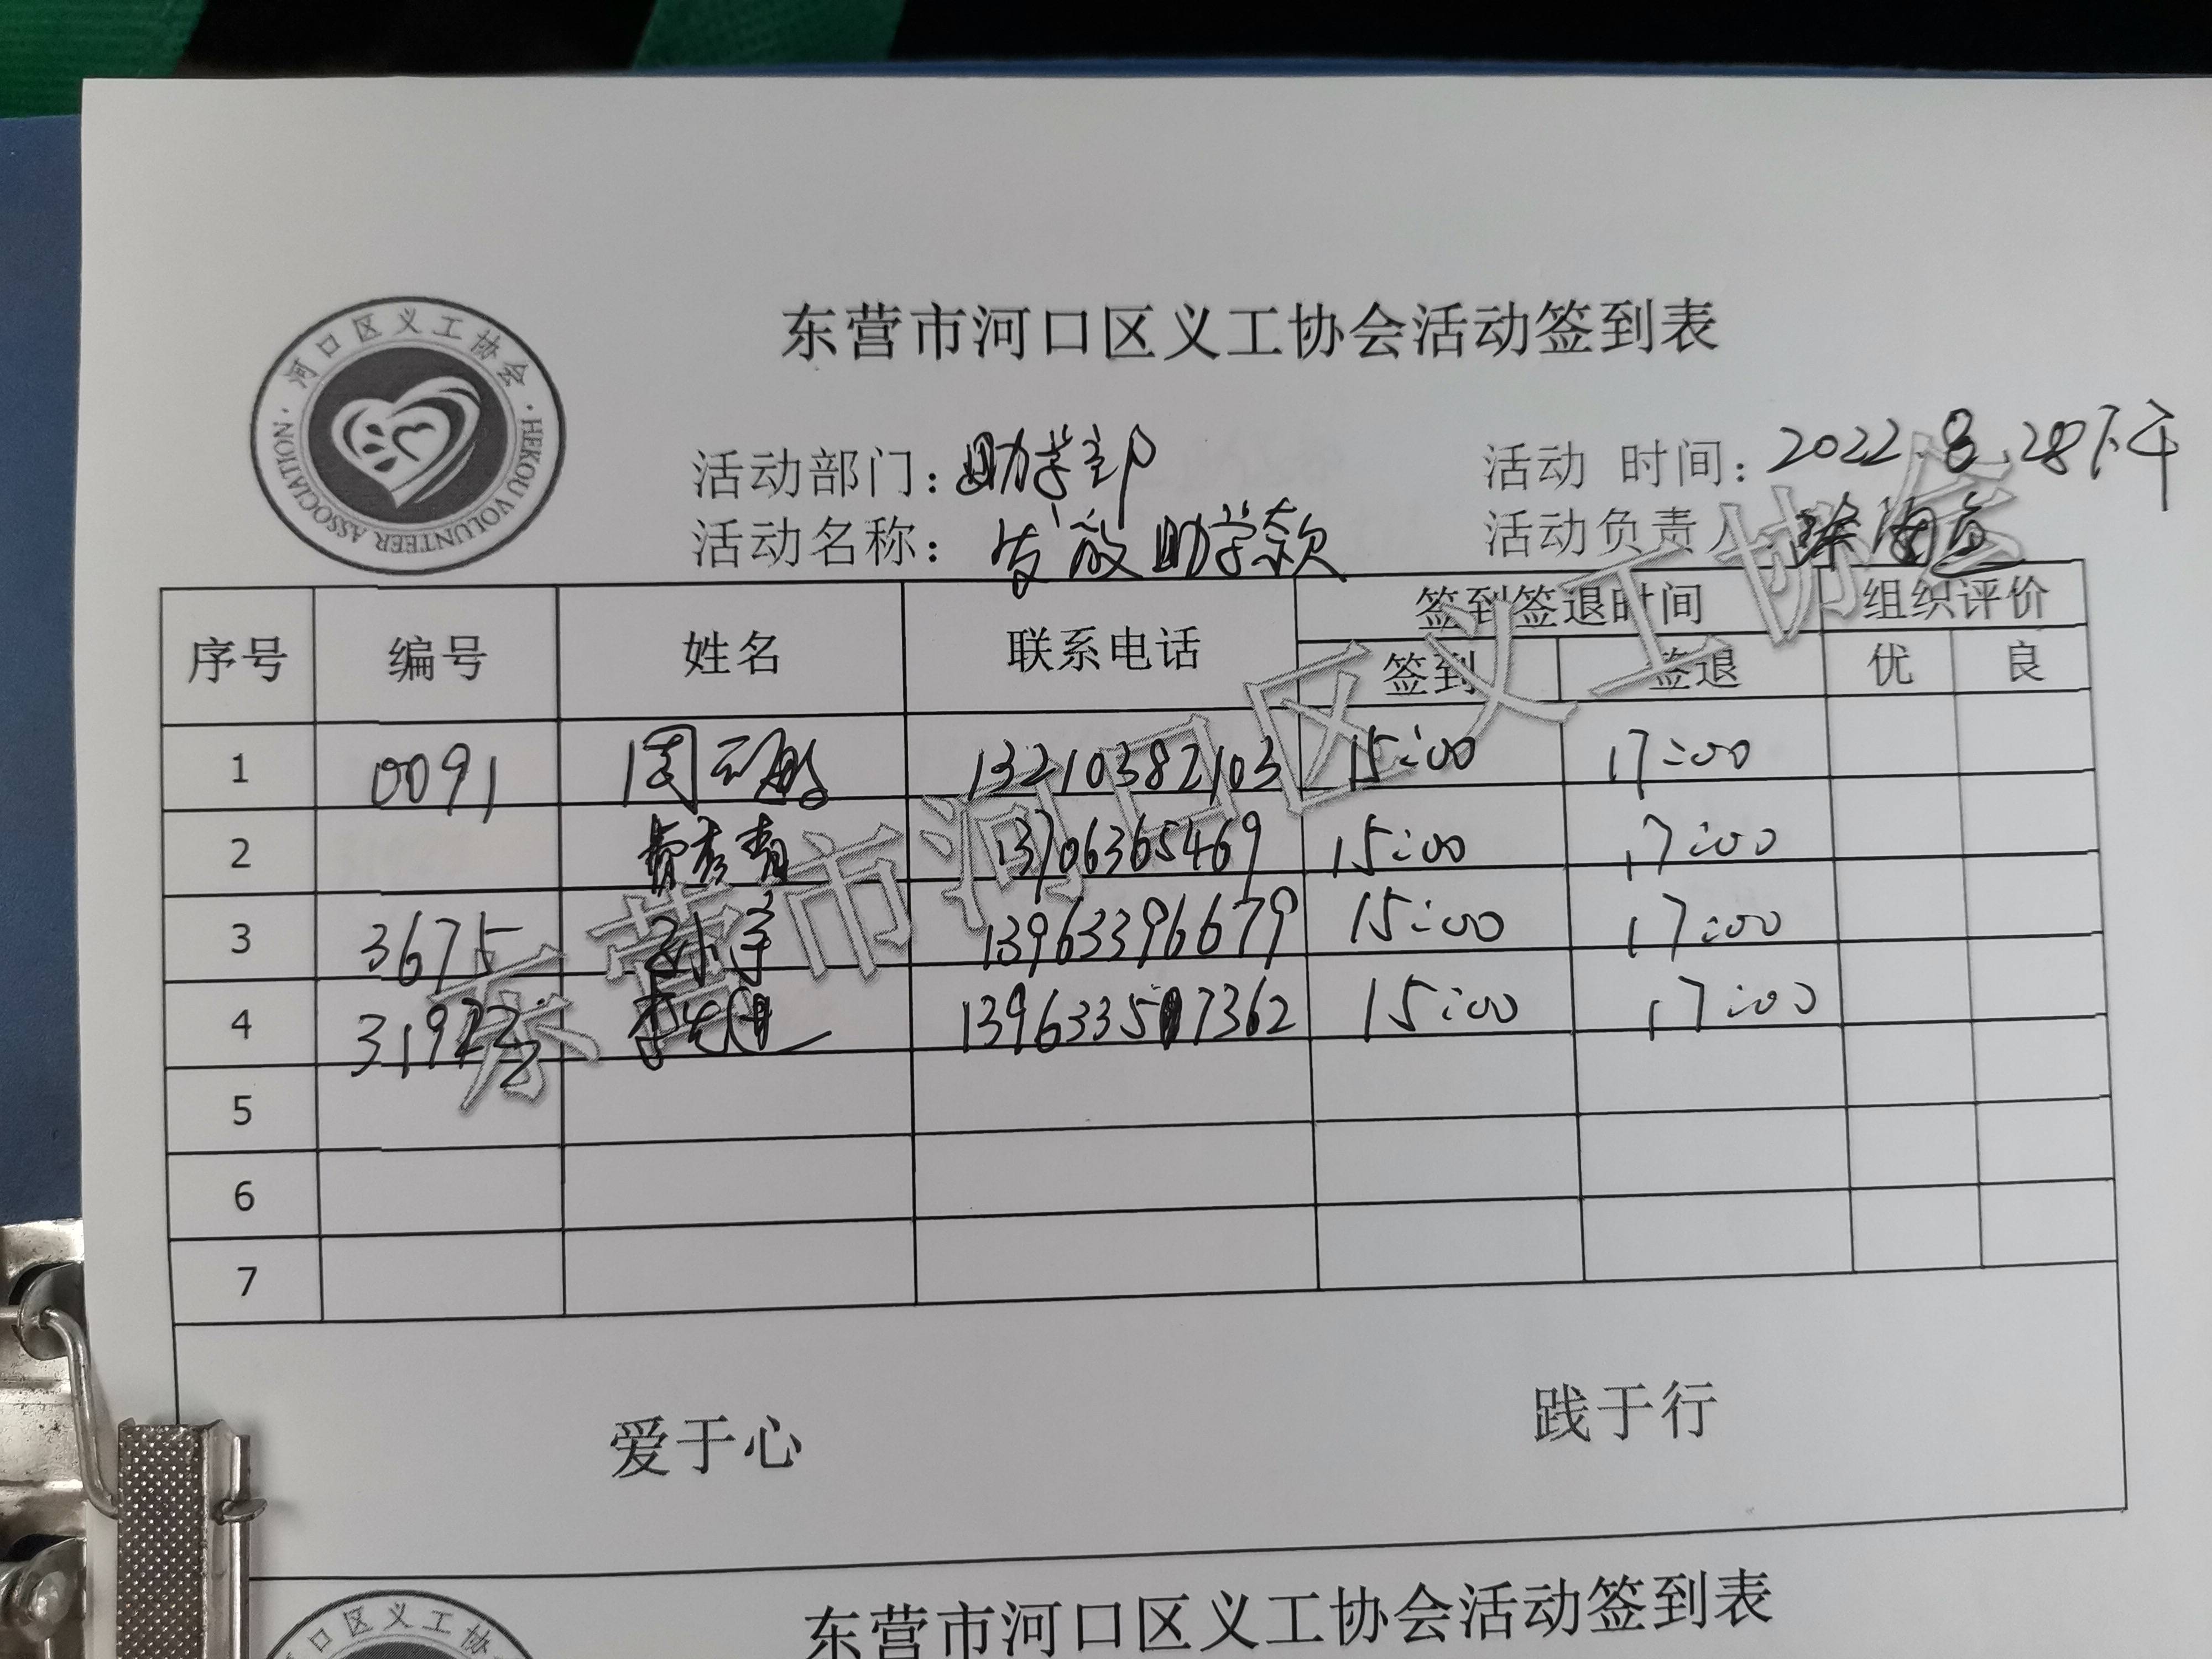 河口区义工协会
HEKOU VOLUNTEER ASSOCIATION
东营市河口区义工协会活动签到表
活动部门：助学部 活动 时间：2022.8.28下午
活动名称：发放助学款 活动负责人
序号 编号 姓名 联系电话 签到签退时间 组织评价
签到 签退 优 良
1 0091 周 13210382103 15:00 17:00
2 13706365469 15:00 17:00
3 3675 孙宇 13963396679 15:00 17:00
4 李 15:00 17:00
5
6
7
东营市河口区义工协会
爱于心 践于行
口区义工协
东营市河口区义工协会活动签到表